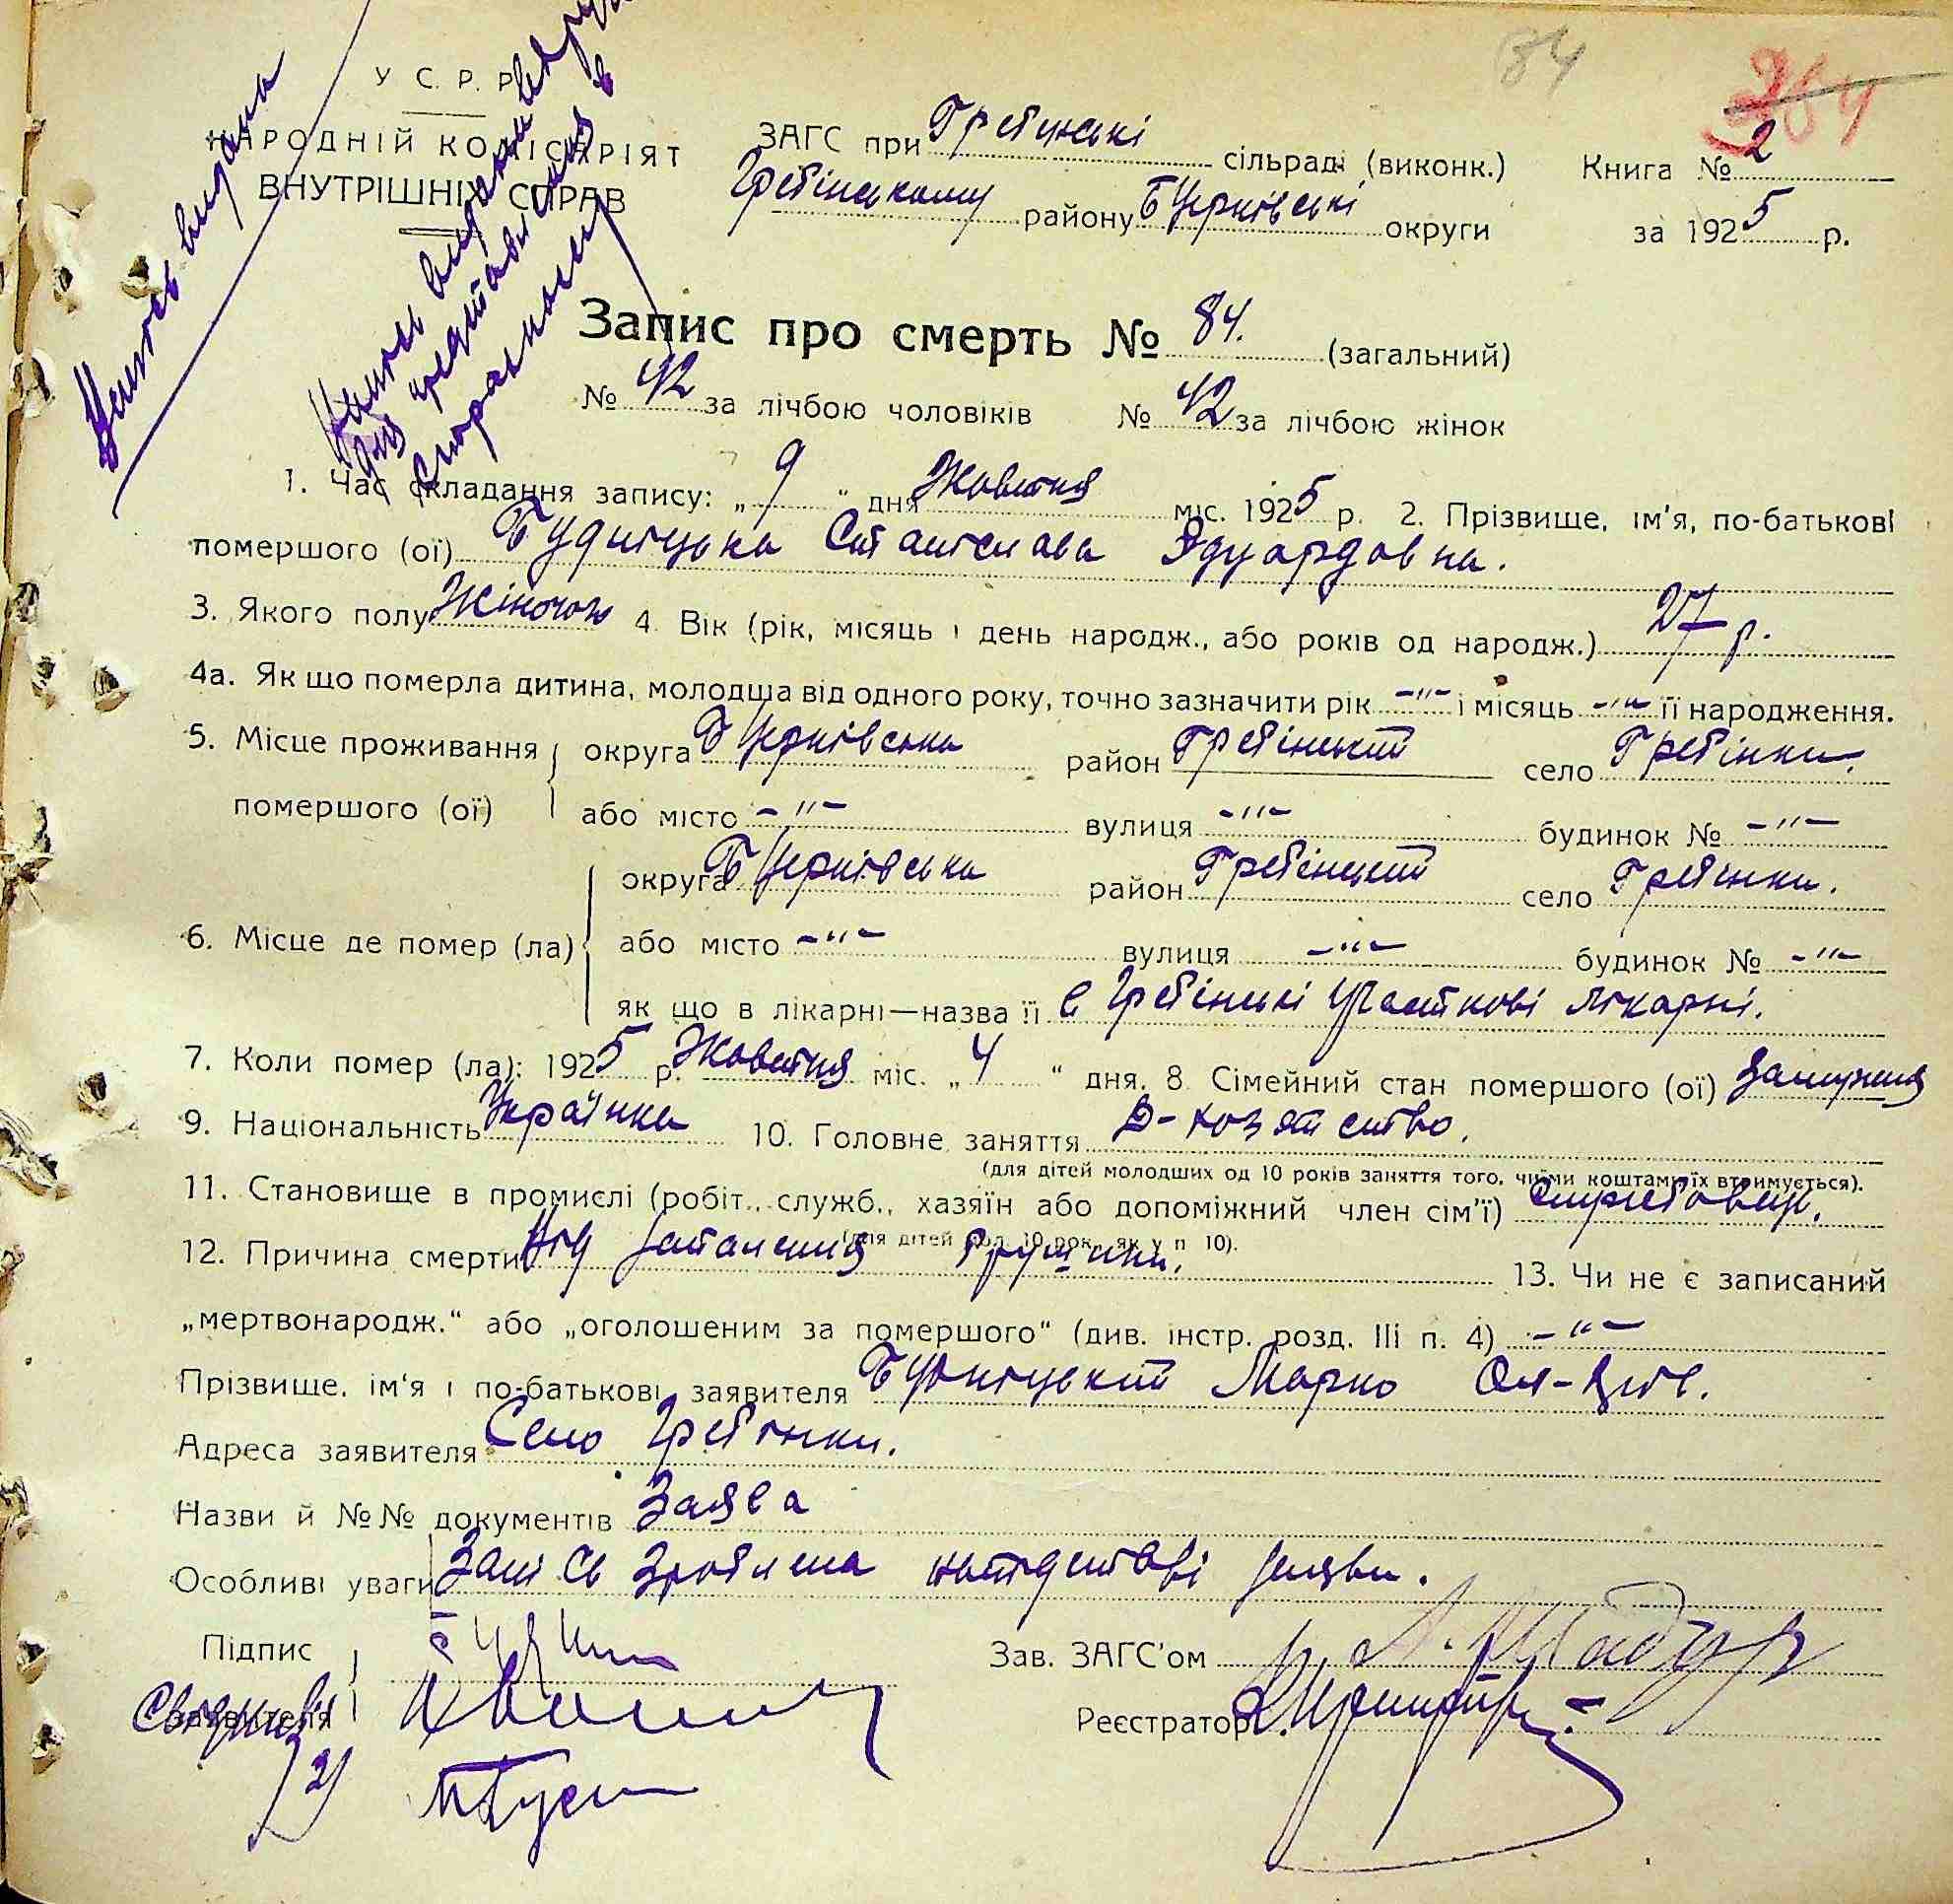 84
264
У С. Р. Р.
НАРОДНІЙ КОМІСАРІЯТ
ВНУТРІШНІХ СПРАВ
ЗАГС при Гребінські сільраді (виконк.) Книга № 2
Гребінському району БЦерківські округи за 1925 р.
Запис про смерть № 84. (загальний)
№ 42 за лічбою чоловіків № 42 за лічбою жінок
1. Час складання запису: „ 9 “ дня Жовтня міс. 1925 р. 2. Прізвище, ім'я, по-батькові
помершого (ої) Будніцька Станіслава Эдуардовна.
3. Якого полу Жіночого 4. Вік (рік, місяць і день народж., або років од народж.) 27 р.
4а. Як що померла дитина, молодша від одного року, точно зазначити рік -"- і місяць -"- її народження.
5. Місце проживання округа БЦерківська район Гребінський село Гребінки.
помершого (ої) або місто -"- вулиця -"- будинок № -"-
округа БЦерківська район Гребінський село Гребінки.
6. Місце де помер (ла) або місто -"- вулиця -"- будинок № -"-
як що в лікарні—назва її в Гребінські участкові лікарні.
7. Коли помер (ла): 1925 р. Жовтня міс. „ 4 “ дня. 8. Сімейний стан помершого (ої) Замужня
9. Національність Українка 10. Головне заняття Д-хозяйство.
(для дітей молодших од 10 років заняття того, чиїми коштами їх втримується).
11. Становище в промислі (робіт., служб., хазяїн або допоміжний член сім'ї)
(для дітей мол. 10 рок., як у п. 10).
12. Причина смерти Від запалення 13. Чи не є записаний
„мертвонародж.“ або „оголошеним за помершого“ (див. інстр. розд. III п. 4) -"-
Прізвище, ім'я і по-батькові заявителя Будніцький Марко
Адреса заявителя Село Гребінки.
Назви й №№ документів Заява
Особливі уваги Запись зроблена напідставі заяви.
Підпис Зав. ЗАГС'ом
заявителя Реєстратор